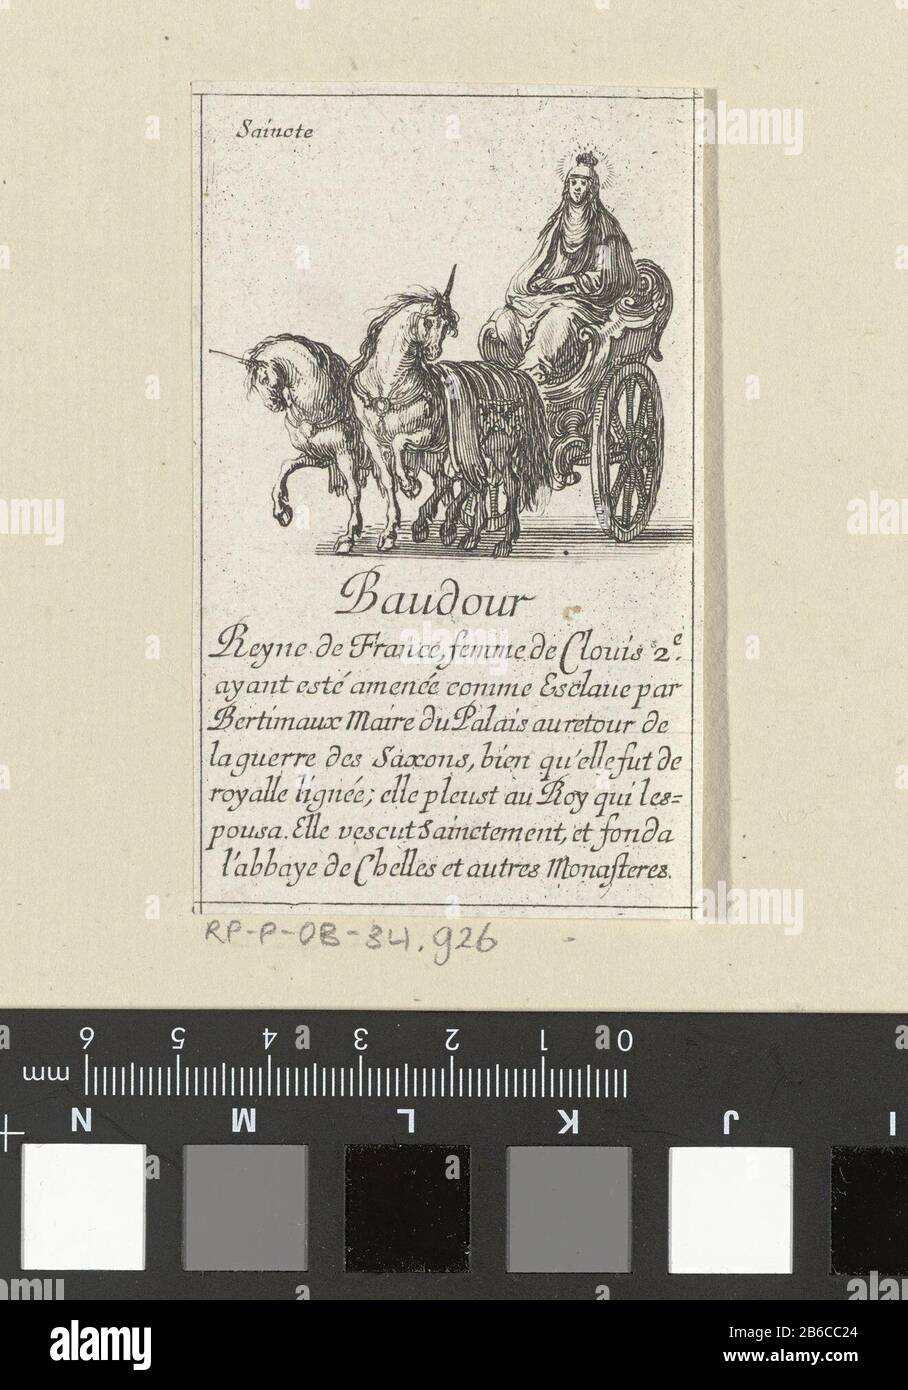 Saincte
Baudour
Reyne de France, femme de Clouis 2.e
ayant esté amenée comme Esclaue par
Bertimaux Maire du Palais au retour de
la guerre des Saxons, bien qu'elle fut de
royalle lignée; elle pleust au Roy qui les=
pousa. Elle vescut Sainctement, et fonda
l'abbaye de Chelles et autres Monasteres.
RP-P-OB-34.926
6 5 4 3 2 1 0
mm
N M L K J I
alamy
Image ID: 2B6CC24
www.alamy.com